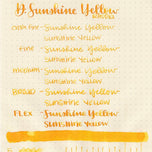 D. Sunshine Yellow
EXTRA FINE - Sunshine Yellow
SUNSHINE YELLOW
FINE - Sunshine Yellow
SUNSHINE YELLOW
MEDIUM - Sunshine Yellow
SUNSHINE YELLOW
BROAD - Sunshine Yellow
SUNSHINE YELLOW
FLEX - Sunshine Yellow
SUNSHINE YELLOW